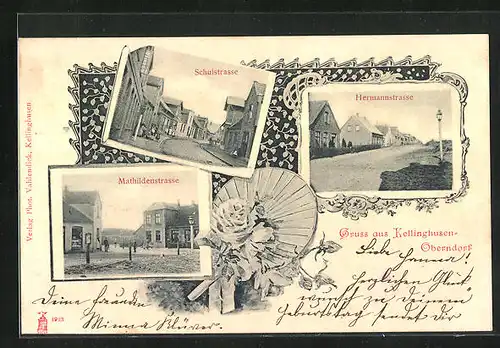 Schulstrasse
Hermannstrasse
Mathildenstrasse
Verlag Phot. Vahlendick, Kellinghusen.
Gruss aus Kellinghusen-
Oberndorf
Liebe Hemme!
herzlichen Glück
wunsch zu deinem
Geburtstag sendet dir
Deine Freundin
Minna Klüver.